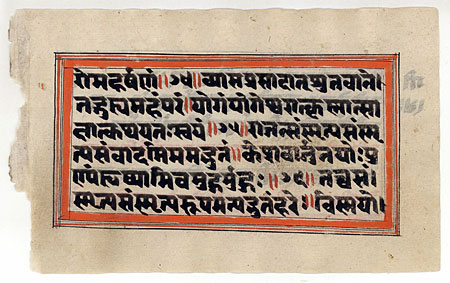 रोमहर्षणं॥७४॥व्यासप्रसादात्श्रुतवाने
तद्गुह्यमहंपरं॥योगंयोगेश्वरात्कृष्णात्सा
क्षात्कथयतःस्वयं॥७५॥राजन्संस्मृत्यसंस्मृ
त्यसंवादमिममद्भुतं॥केशवार्जुनयोःपु
ण्यंहृष्यामिचमुहुर्मुहुः॥७६॥तच्चसं
स्मृत्यसंस्मृत्यरूपमत्यद्भुतंहरेः॥विस्मयो